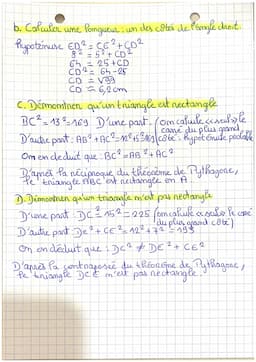 b. Calculer une longueur : un des côtés de l'angle droit
hypoténuse ED² = CE² + CD²
8² = 5² + CD²
64 = 25 + CD
CD² = 64 - 25
CD = √39
CD ≈ 6,2cm
C. Démontrer qu'un triangle est rectangle
BC² = 13² = 169 D'une part (on calcule à seul le
carré du plus grand
D'autre part : AB² + AC² = 12² + 5² = 169 côté : hypoténuse
On en déduit que : BC² = AB² + AC²
D'après la réciproque du théorème de Pythagore,
le triangle ABC est rectangle en A.
D. Démontrer qu'un triangle n'est pas rectangle
D'une part : DC² = 15² = 225 (on calcule à seul le carré
du plus grand côté)
D'autre part : DE² + CE² = 12² + 7² = 193
On en déduit que : DC² ≠ DE² + CE²
D'après la contraposée du théorème de Pythagore,
le triangle DCE n'est pas rectangle.